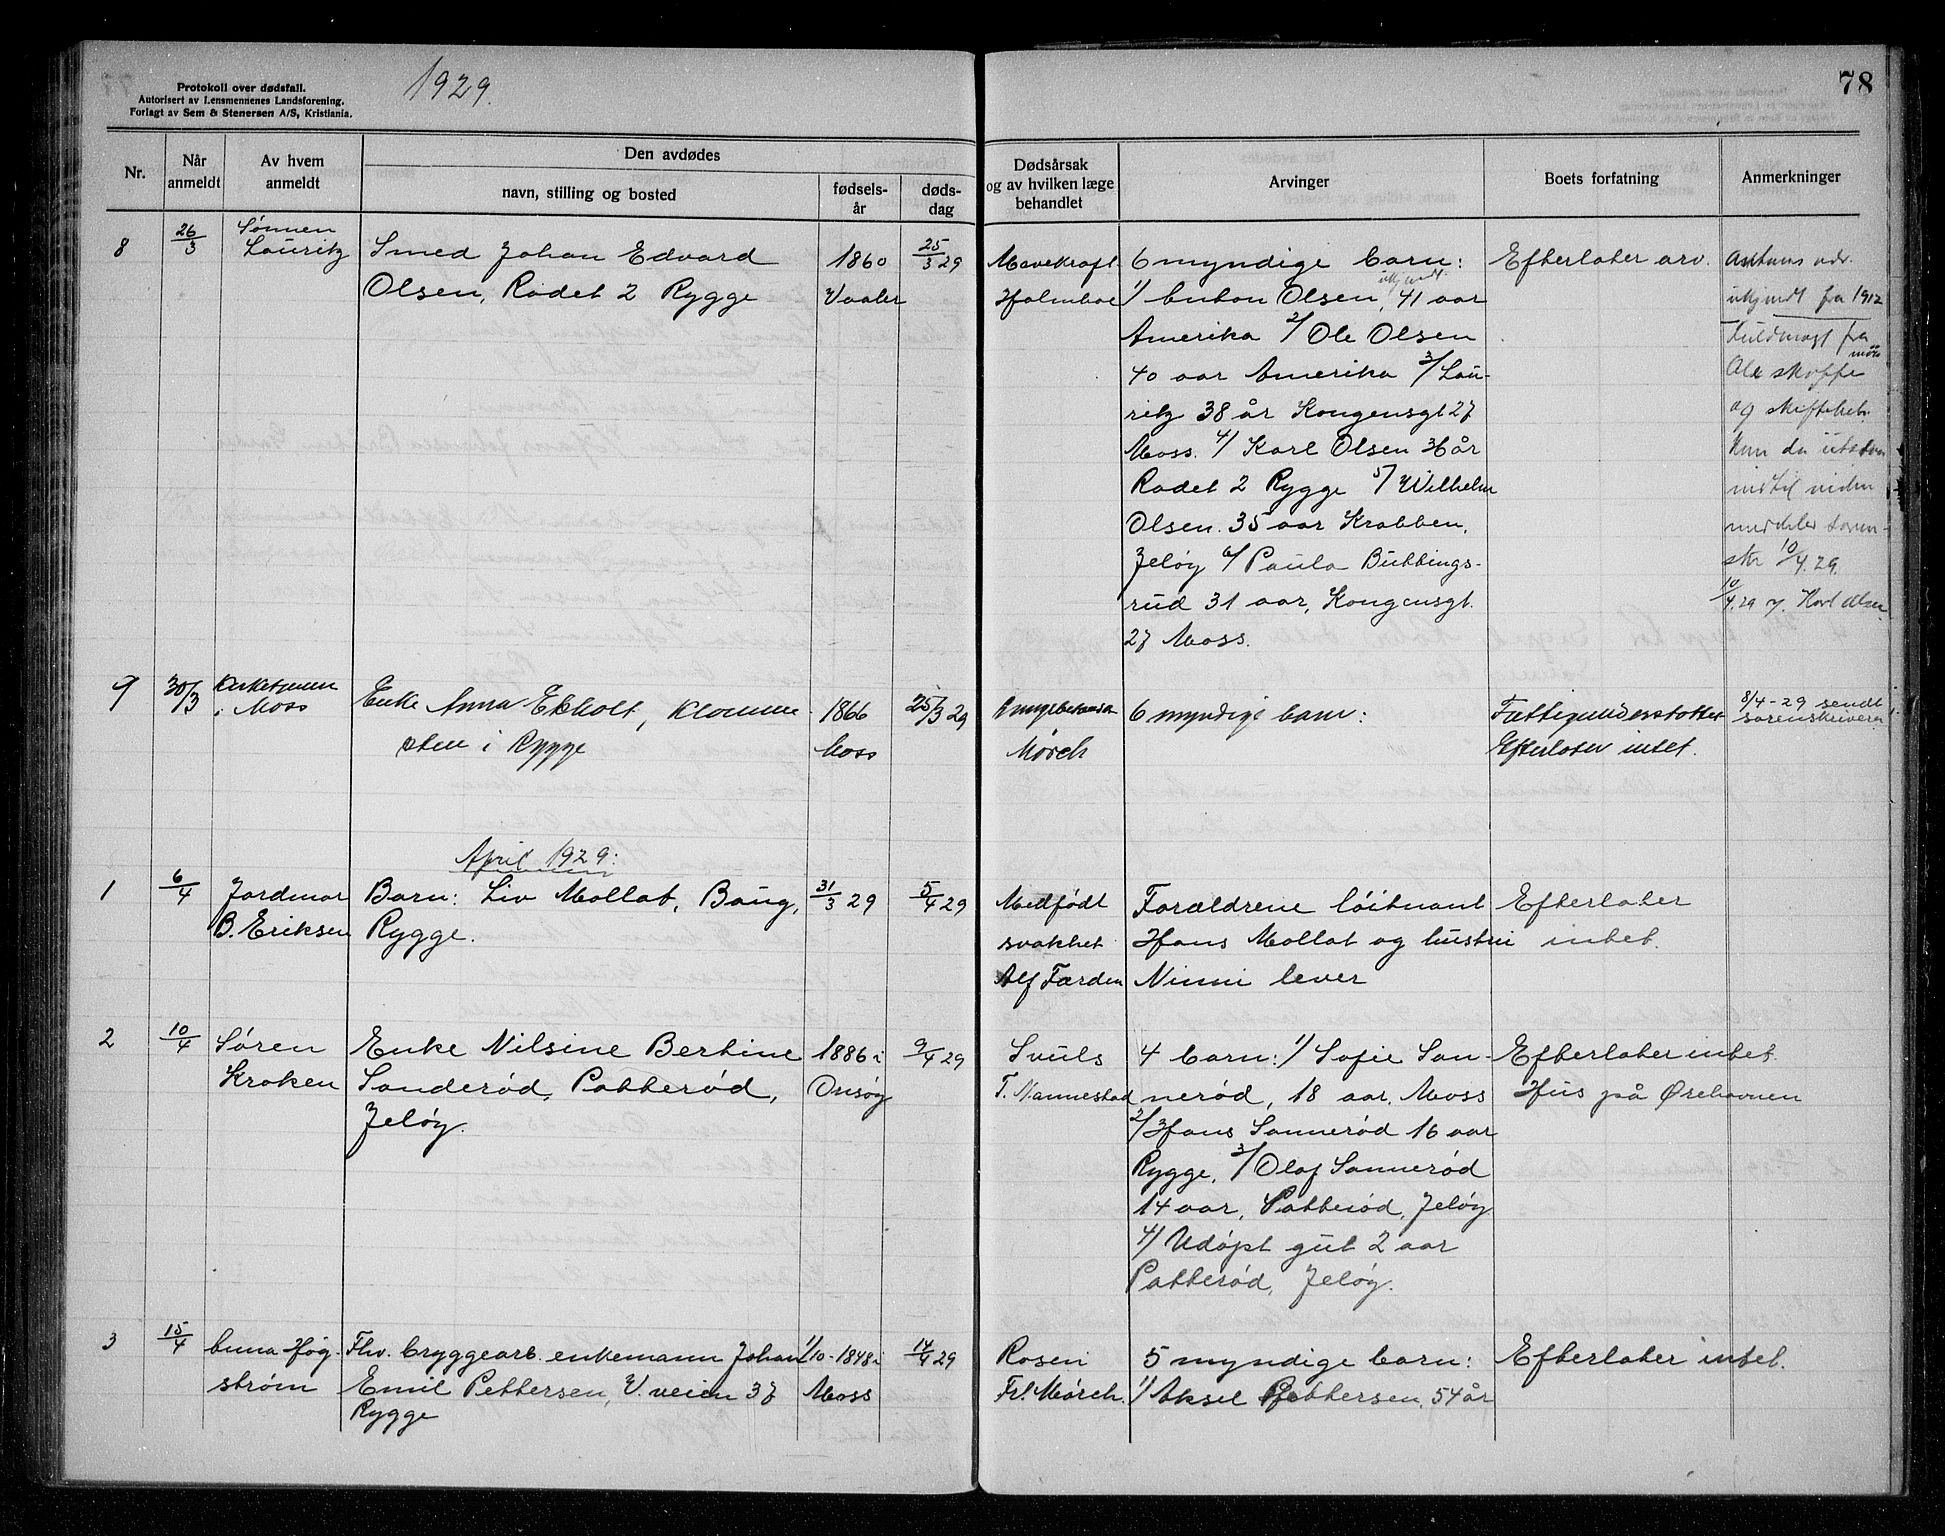 Protokoll over dødsfall.
Autorisert av Lensmennenes Landsforening.
Forlagt av Sem & Stenersen A/S, Kristiania.
1929.
78
Nr.
Når anmeldt
Av hvem anmeldt
Den avdødes
navn, stilling og bosted
fødselsår
dødsdag
Dødsårsak
og av hvilken læge
behandlet
Arvinger
Boets forfatning
Anmerkninger
8
26/3
Sønnen
Lauritz
Smed Johan Edvard
Olsen, Rødet 2 Rygge
1860
Vaaler
25/3 29
Mavekræft
Holmboe
6 myndige barn:
1/ Anton Olsen, ukjendt 41 aar
Amerika 2/ Ole Olsen
40 aar Amerika 3/ Lau-
ritz 38 år Kongensgt 27
Moss. 4/ Karl Olsen 36 år
Rødet 2 Rygge 5/ Wilhelm
Olsen. 35 aar Krabben,
Jeløy 6/ Paula Bubbings-
rud 31 aar, Kongensgt.
27 Moss.
Efterlater arv.
Antons adr.
ukjendt fra 1912
Fuldmagt fra
Ole skaffe
og skiftebeh.
10/4.29.
10/4.29 Karl Olsen
9
30/3
i Moss
Enke Anna Ekholt,
i Rygge
1866
Moss
25/3 29
Mørch
6 myndige barn:
Fattigunderstøttet
Efterlater intet.
8/4-29 sendt
sorenskriveren
April 1929:
1
6/4
Jordmor
B. Eriksen
Barn: Liv Mollat, Baug,
Rygge.
31/3 29
5/4 29
Medfødt
svakhet
Alf Færden
Forældrene løitnant
Hans Mollat og hustru
Ninni lever
Efterlater
intet.
2
10/4
Søren
Kroken
Enke Nilsine Bertine
Sanderød, Patterød,
Jeløy.
1886 i
Onsøy
9/4 29
Svuls
T. Nannestad
4 barn: 1/ Sofie San-
nerød, 18 aar. Moss
2/ Hans Sannerød 16 aar
Rygge, 3/ Olaf Sannerød
14 aar, Patterød, Jeløy
4/ Udøpt gut 2 aar
Patterød, Jeløy.
Efterlater intet.
Hus på Ørehavnen
3
15/4
Anna Høg-
strøm
Fhv. bryggearb. enkemann Johan
Emil Pettersen, V. veien 37
Rygge
1/10-1848 i
Moss
14/4 29
Rosen
Frl. Mørch.
5 myndige barn:
1/ Aksel Pettersen, 54 år
Efterlater intet.